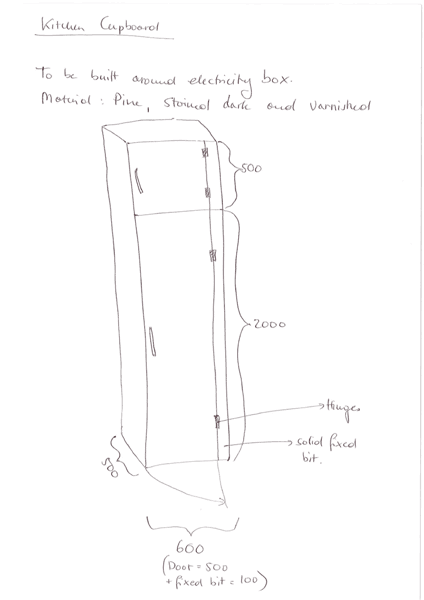 Kitchen Cupboard
To be built around electricity box.
Material : Pine, stained dark and varnished
500
2000
Hinges
solid fixed
bit.
500
600
(Door = 500
+ fixed bit = 100)